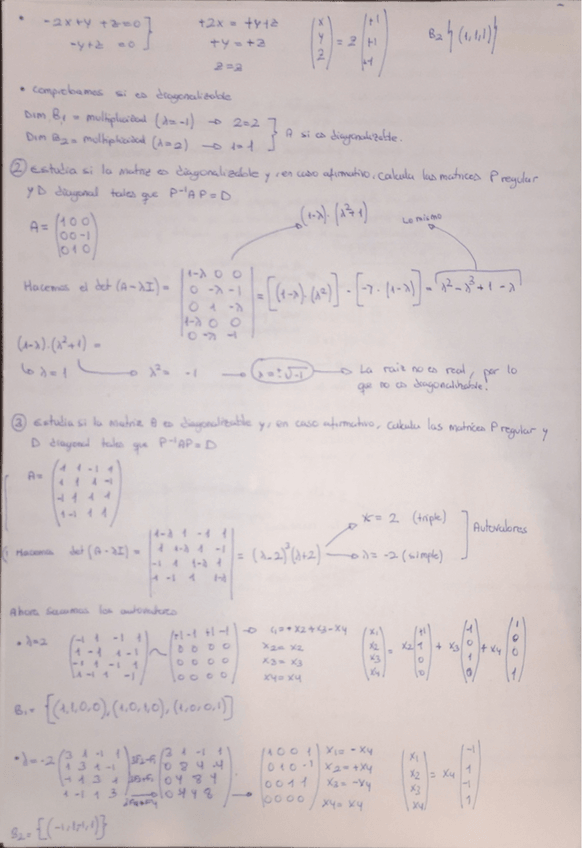 • -2x+y+z=0 } +2x = +y+z (x y z) = z (+1 +1 +1) B2 {(1,1,1)}
-y+z =0 +y = +z
z=z
• comprobamos si es diagonalizable
Dim B1 = multiplicidad (λ=-1) → 2=2 } A si es diagonalizable.
Dim B2 = multiplicidad (λ=2) → 1=1
② estudia si la matriz es diagonalizable y, en caso afirmativo, calcula las matrices P regular
y D diagonal tales que P⁻¹AP=D
(1-λ)·(λ²+1) Lo mismo
A = (1 0 0
0 0 -1
0 1 0)
Hacemos el det (A-λI) = |1-λ 0 0
0 -λ -1
0 1 -λ
1-λ 0 0
0 -λ -1| = [(1-λ)·(λ²)] - [-1·(1-λ)] = λ²-λ³+1-λ
(1-λ)·(λ²+1) =
↳ λ=1 → λ² = -1 → λ=±√-1 → La raiz no es real, por lo
que no es diagonalizable.
③ estudia si la matriz A es diagonalizable y, en caso afirmativo, calcula las matrices P regular y
D diagonal tales que P⁻¹AP=D
A = (1 1 -1 1
1 1 1 -1
-1 1 1 1
1 -1 1 1)
Hacemos det (A-λI) = |1-λ 1 -1 1
1 1-λ 1 -1
-1 1 1-λ 1
1 -1 1 1-λ| = (λ-2)³(λ+2)
λ=2 (triple)
λ=-2 (simple)
Autovalores
Ahora sacamos los
• λ=2 (-1 1 -1 1
1 -1 1 -1
-1 1 -1 1
1 -1 1 -1) ~ (+1 -1 +1 -1
0 0 0 0
0 0 0 0
0 0 0 0) → x1=+x2+x3-x4
x2=x2
x3=x3
x4=x4
(x1 x2 x3 x4) = x2 (+1 1 0 0) + x3 (1 0 1 0) + x4 (1 0 0 1)
B1 = {(1,1,0,0),(1,0,1,0),(1,0,0,1)}
• λ=-2 (3 1 -1 1
1 3 1 -1
-1 1 3 1
1 -1 1 3) → (3 1 -1 1
0 8 4 -4
0 4 8 4
0 4 4 8) → (1 0 0 1
0 1 0 -1
0 0 1 1
0 0 0 0) x1=-x4
x2=+x4
x3=-x4
x4=x4
(x1 x2 x3 x4) = x4 (-1 1 -1 1)
B2 = {(-1,1,-1,1)}